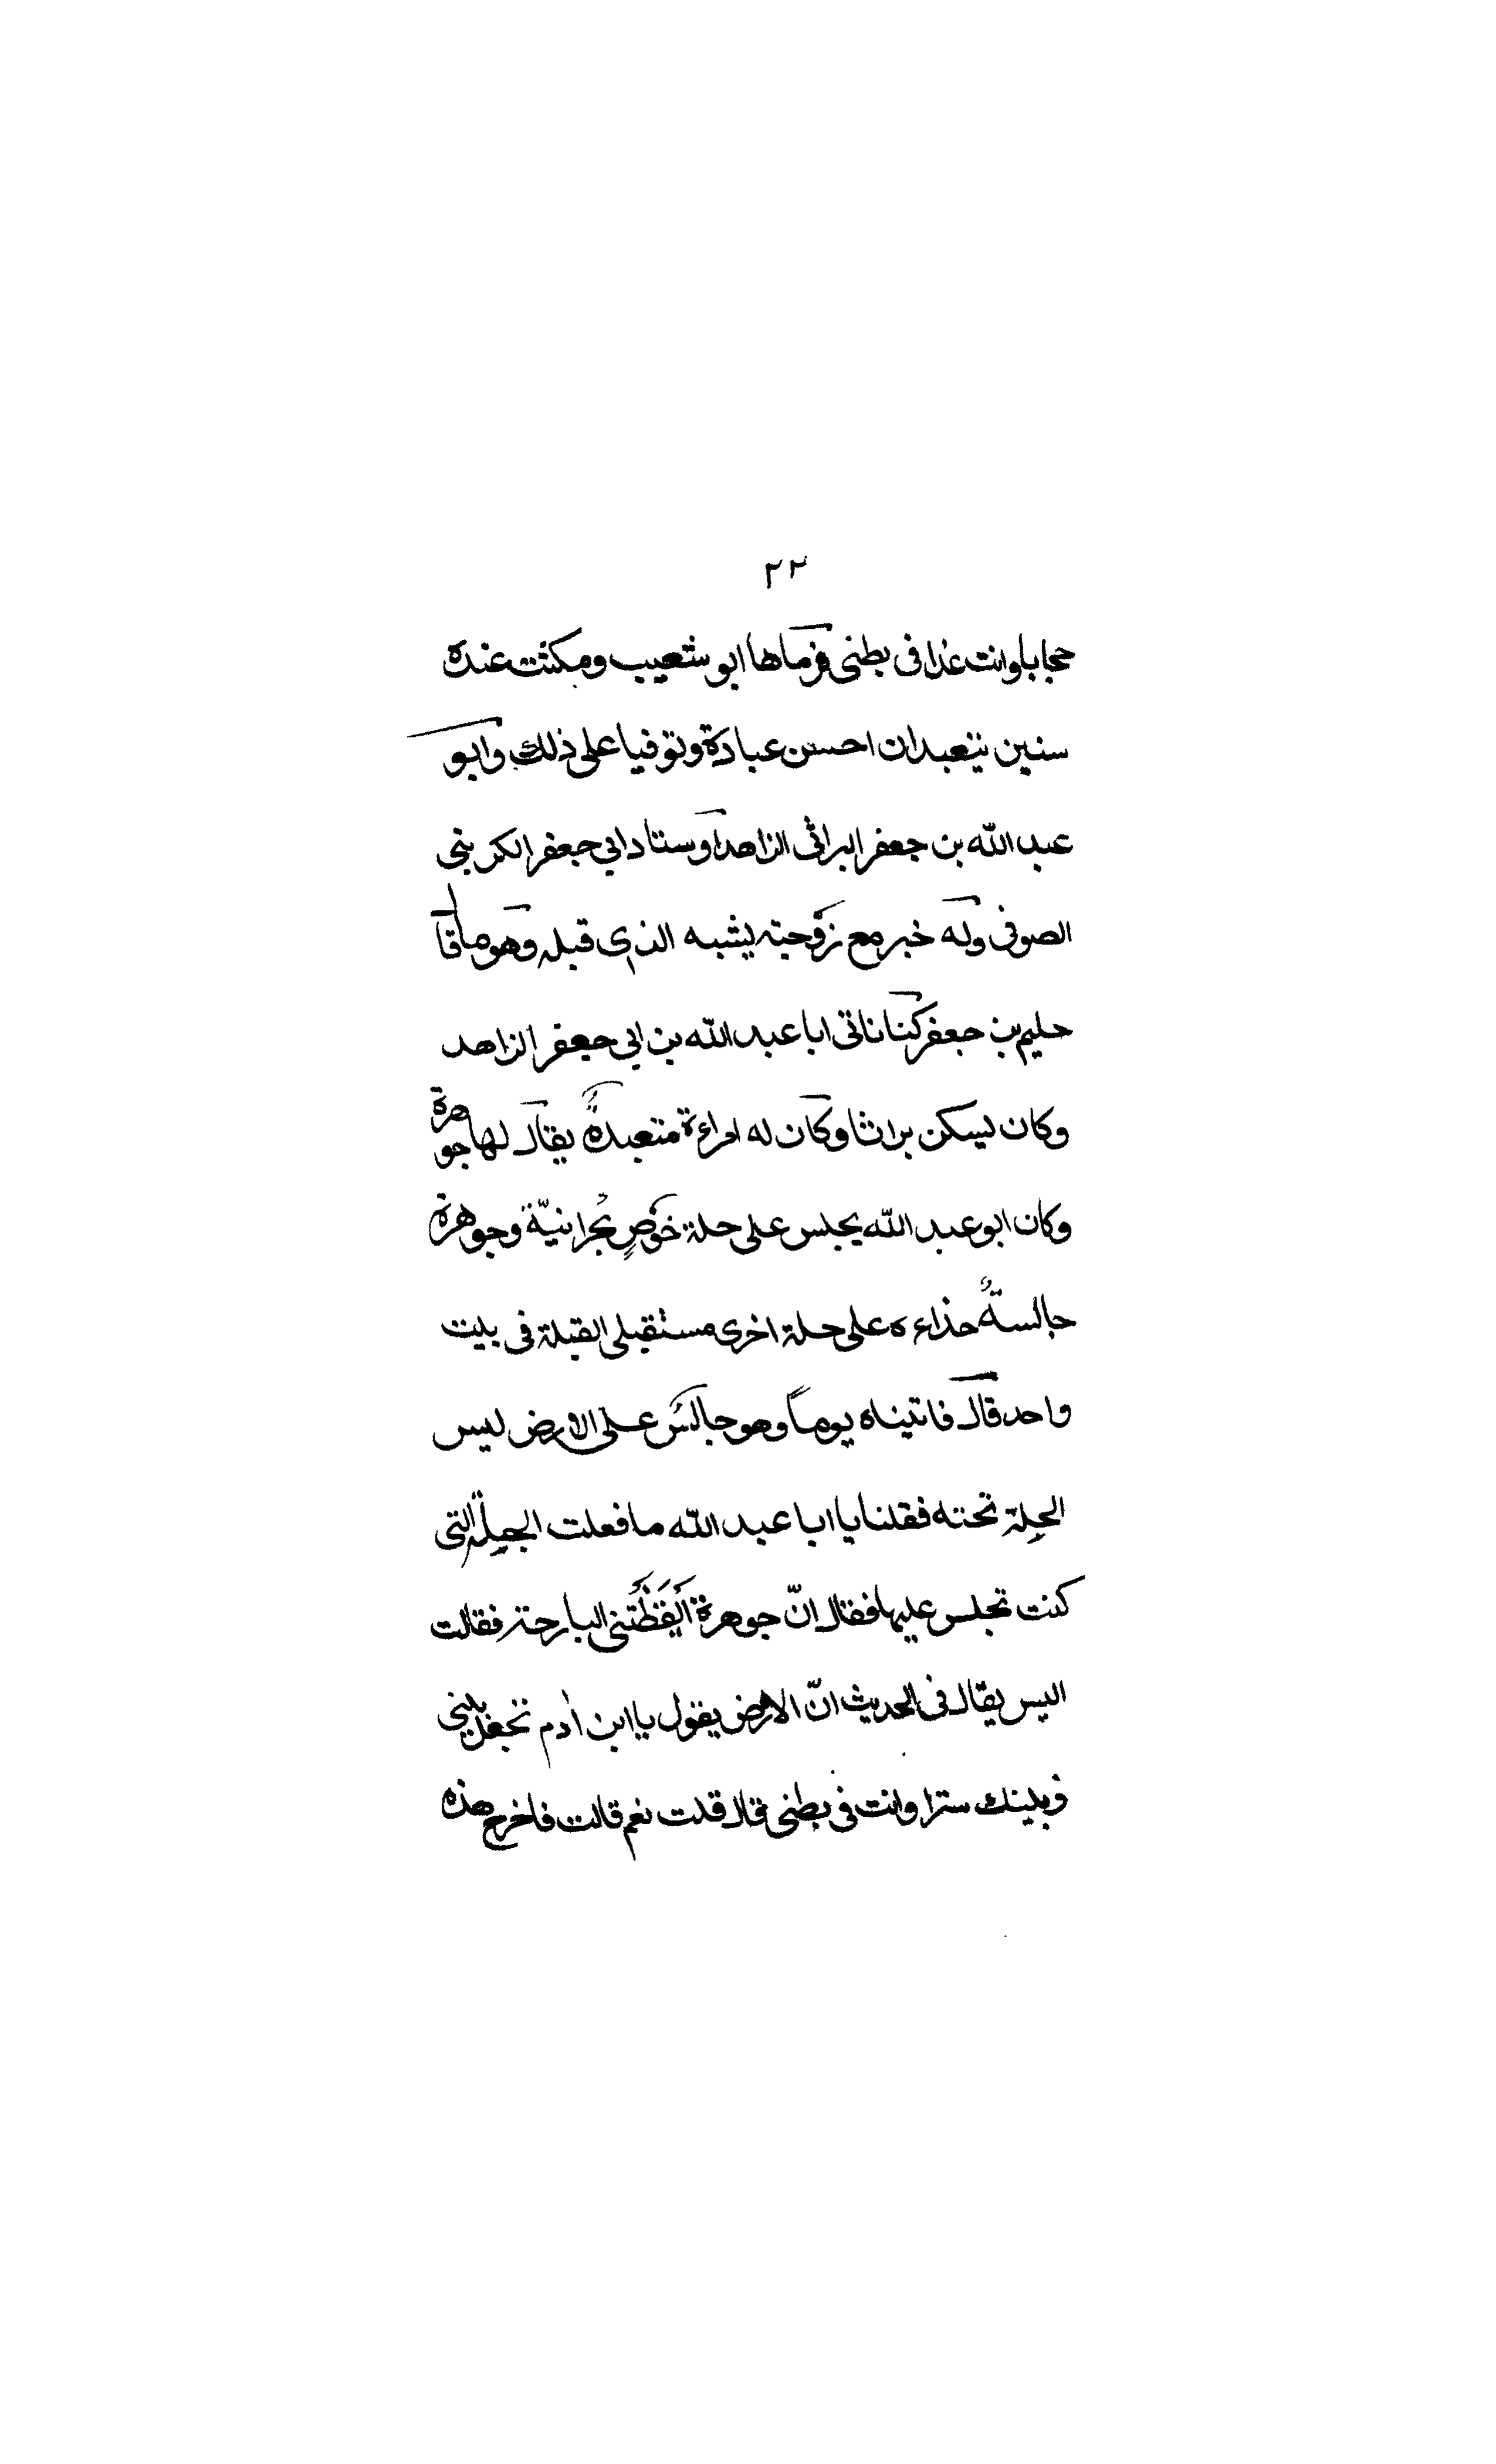 ٢٢
حجابا وانت غذا فى بطنى فرماها ابو شعيب ومكثت عنده
سنين يتعبدان احسن عبادة وتوفيا على ذلك وابو
عبد الله بن جعفر البراثى الزاهد اوستاد ابي جعفر الكرينى
الصوفى وله خبر مع زوجته يشبه الذى قبله وهو ما قا
حليم بن جعفر كنا ناتى ابا عبد الله بن ابي جعفر الزاهد
وكان يسكن براثا وكان له امراءة متعبدةٌ يقال لها جوهرة
وكان ابو عبد الله يجلس على حلة خوصٍ بُحرانيّة وجوهرة
جالسةٌ حذاءه على حلة اخرى مستقبلى القبلة فى بيت
واحد قال فاتيناه يوماً وهو جالسٌ على الارض ليس
الحلة تحته فقلنا يا ابا عبد الله ما فعلت الجلة التى
كنت تجلس عليها فقال انّ جوهرة اَيْقَظَتْنى البارحة فقالت
اليس يقال فى الحديث انّ الارض يقول يا ابن اٰدم تجعل بينى
وبينك سترا وانت فى بطنى قال قلت نعم قالت فاخرج هذه